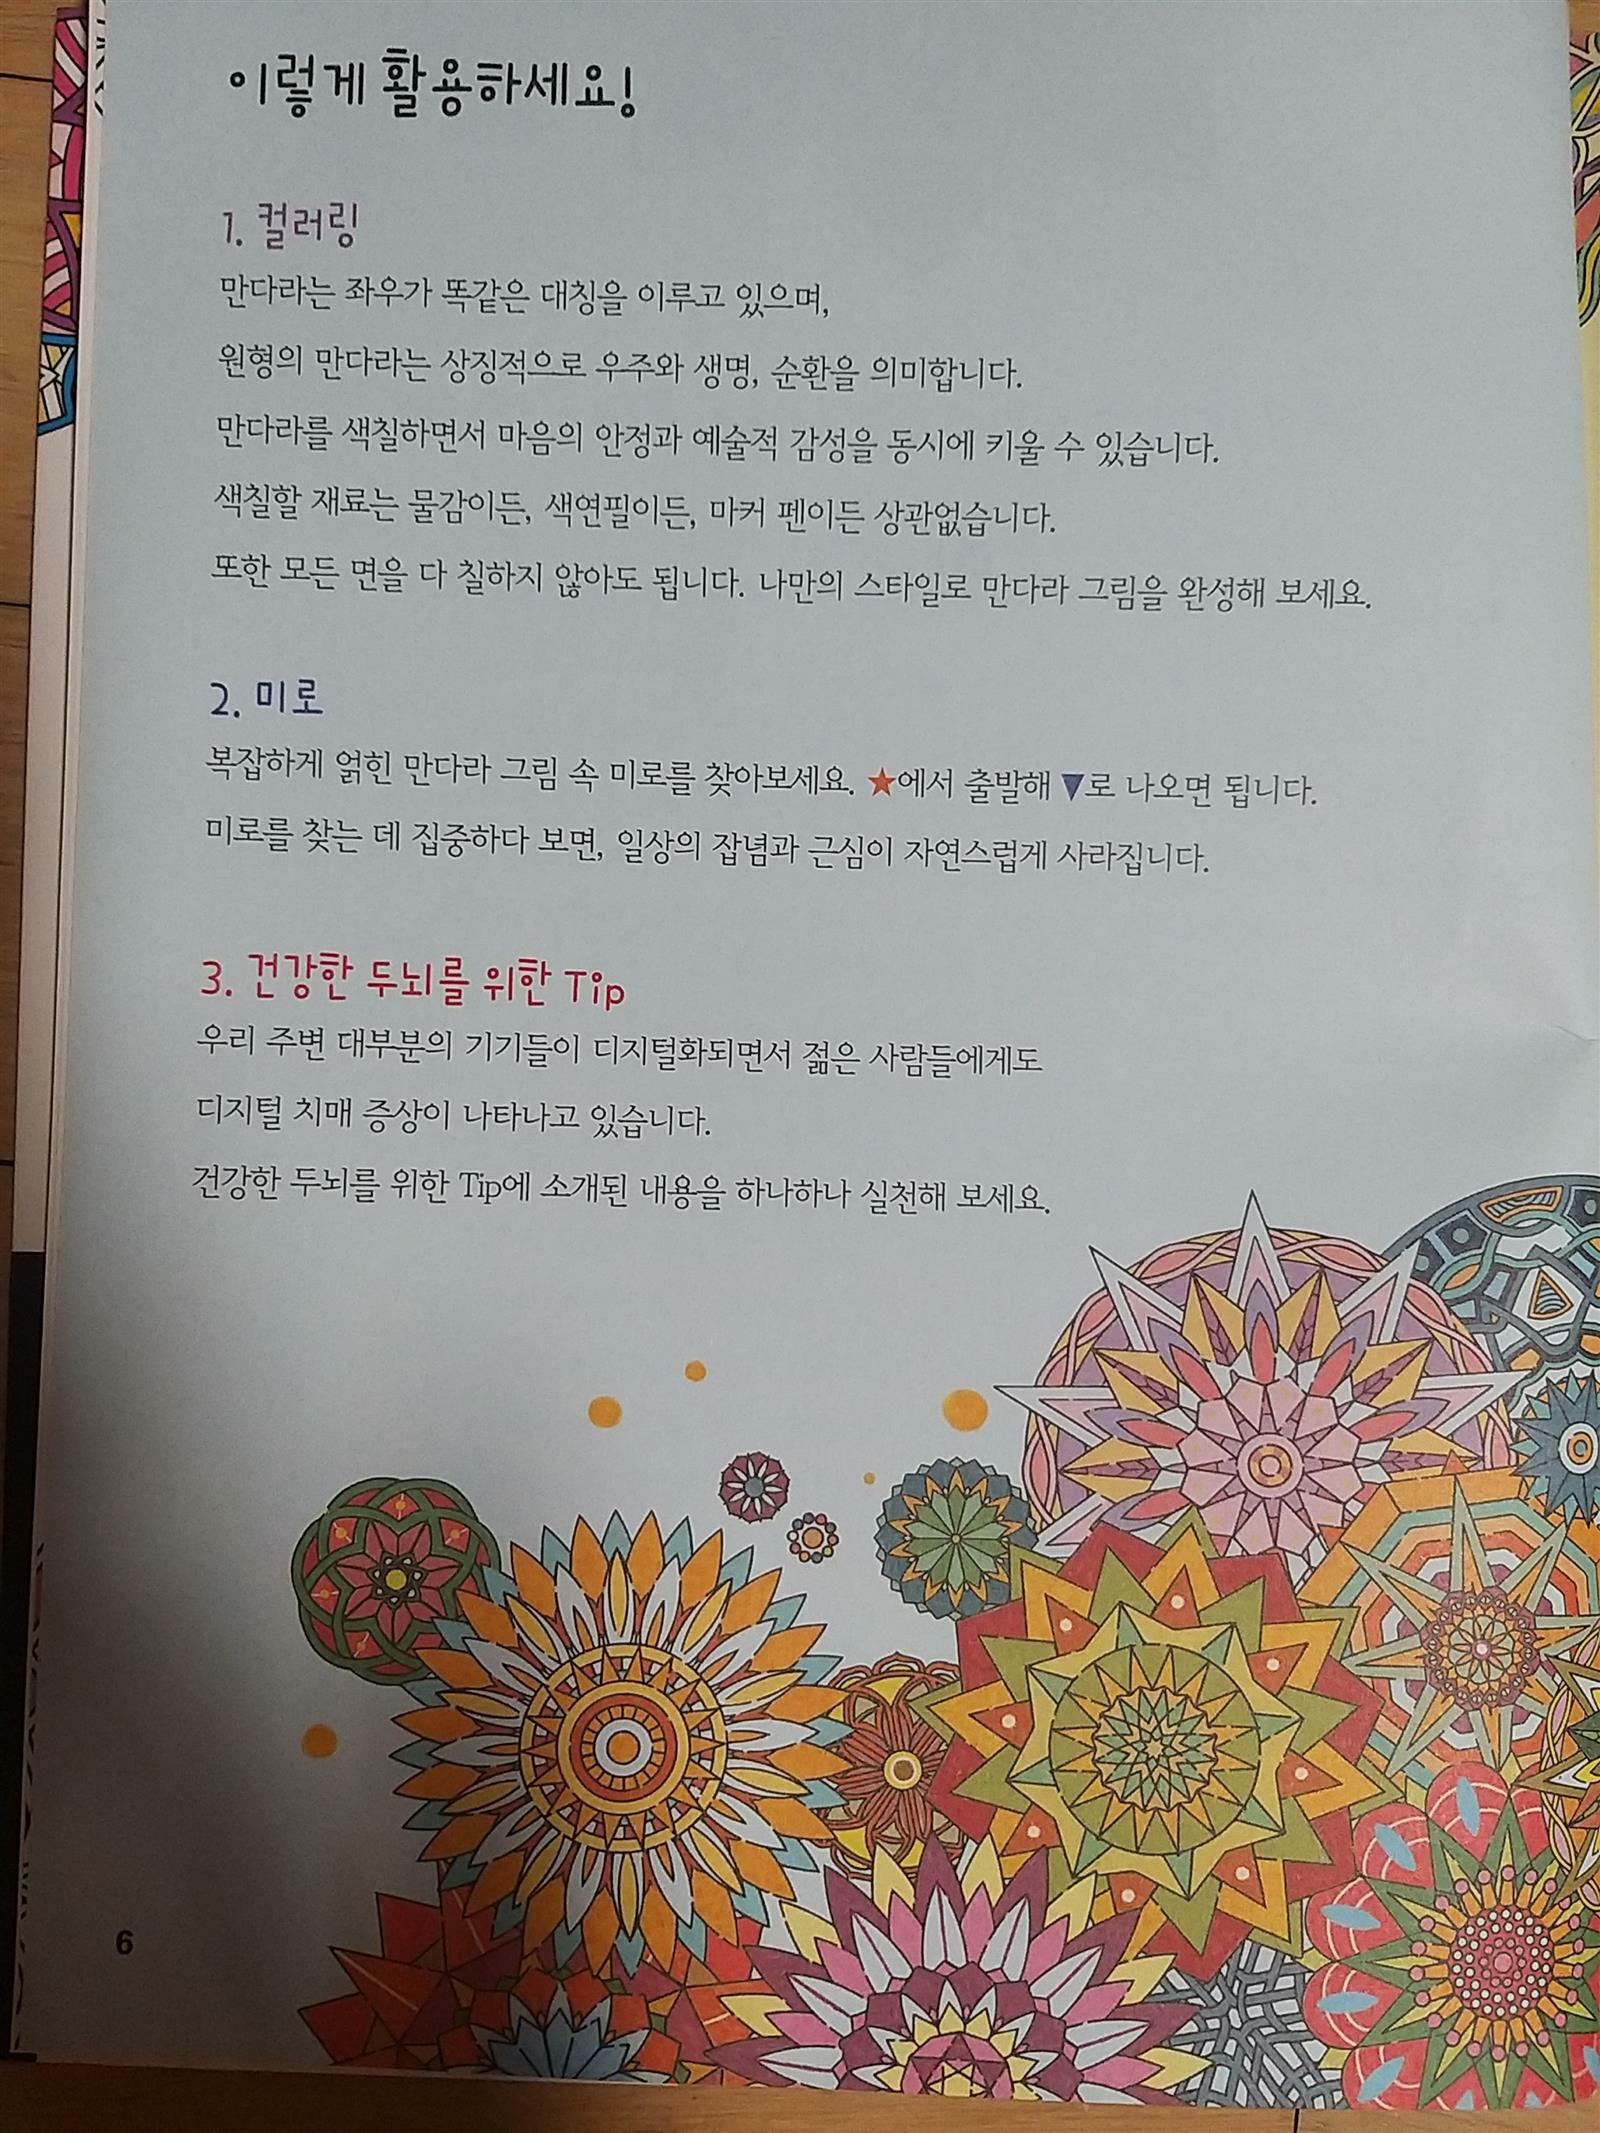 이렇게 활용하세요!
1. 컬러링
만다라는 좌우가 똑같은 대칭을 이루고 있으며,
원형의 만다라는 상징적으로 우주와 생명, 순환을 의미합니다.
만다라를 색칠하면서 마음의 안정과 예술적 감성을 동시에 키울 수 있습니다.
색칠할 재료는 물감이든, 색연필이든, 마커 펜이든 상관없습니다.
또한 모든 면을 다 칠하지 않아도 됩니다. 나만의 스타일로 만다라 그림을 완성해 보세요.
2. 미로
복잡하게 얽힌 만다라 그림 속 미로를 찾아보세요. ★에서 출발해 ▼로 나오면 됩니다.
미로를 찾는 데 집중하다 보면, 일상의 잡념과 근심이 자연스럽게 사라집니다.
3. 건강한 두뇌를 위한 Tip
우리 주변 대부분의 기기들이 디지털화되면서 젊은 사람들에게도
디지털 치매 증상이 나타나고 있습니다.
건강한 두뇌를 위한 Tip에 소개된 내용을 하나하나 실천해 보세요.
6